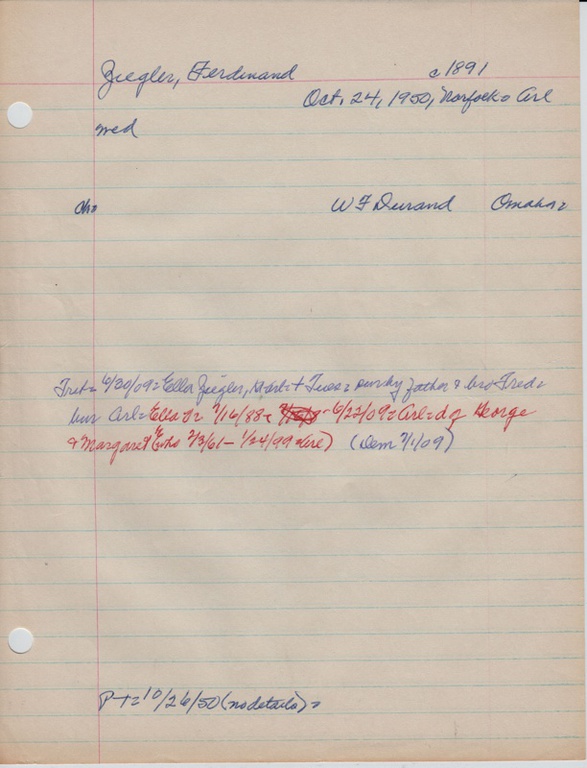 Ziegler, Ferdinand c1891
Oct. 24, 1950, Norfolk = Arl
med
ch= W F Durand Omaha=
Trib= 6/30/09= Ella Ziegler, + Tues= surv by father & bro Fred=
bur Arl= Ella 2/16/88 6/22/09= Arl= d of George
& Margaret 2/3/61 – 1/24/99 = Arl) (Dem 7/1/09)
P-T= 10/26/50 (no details)=